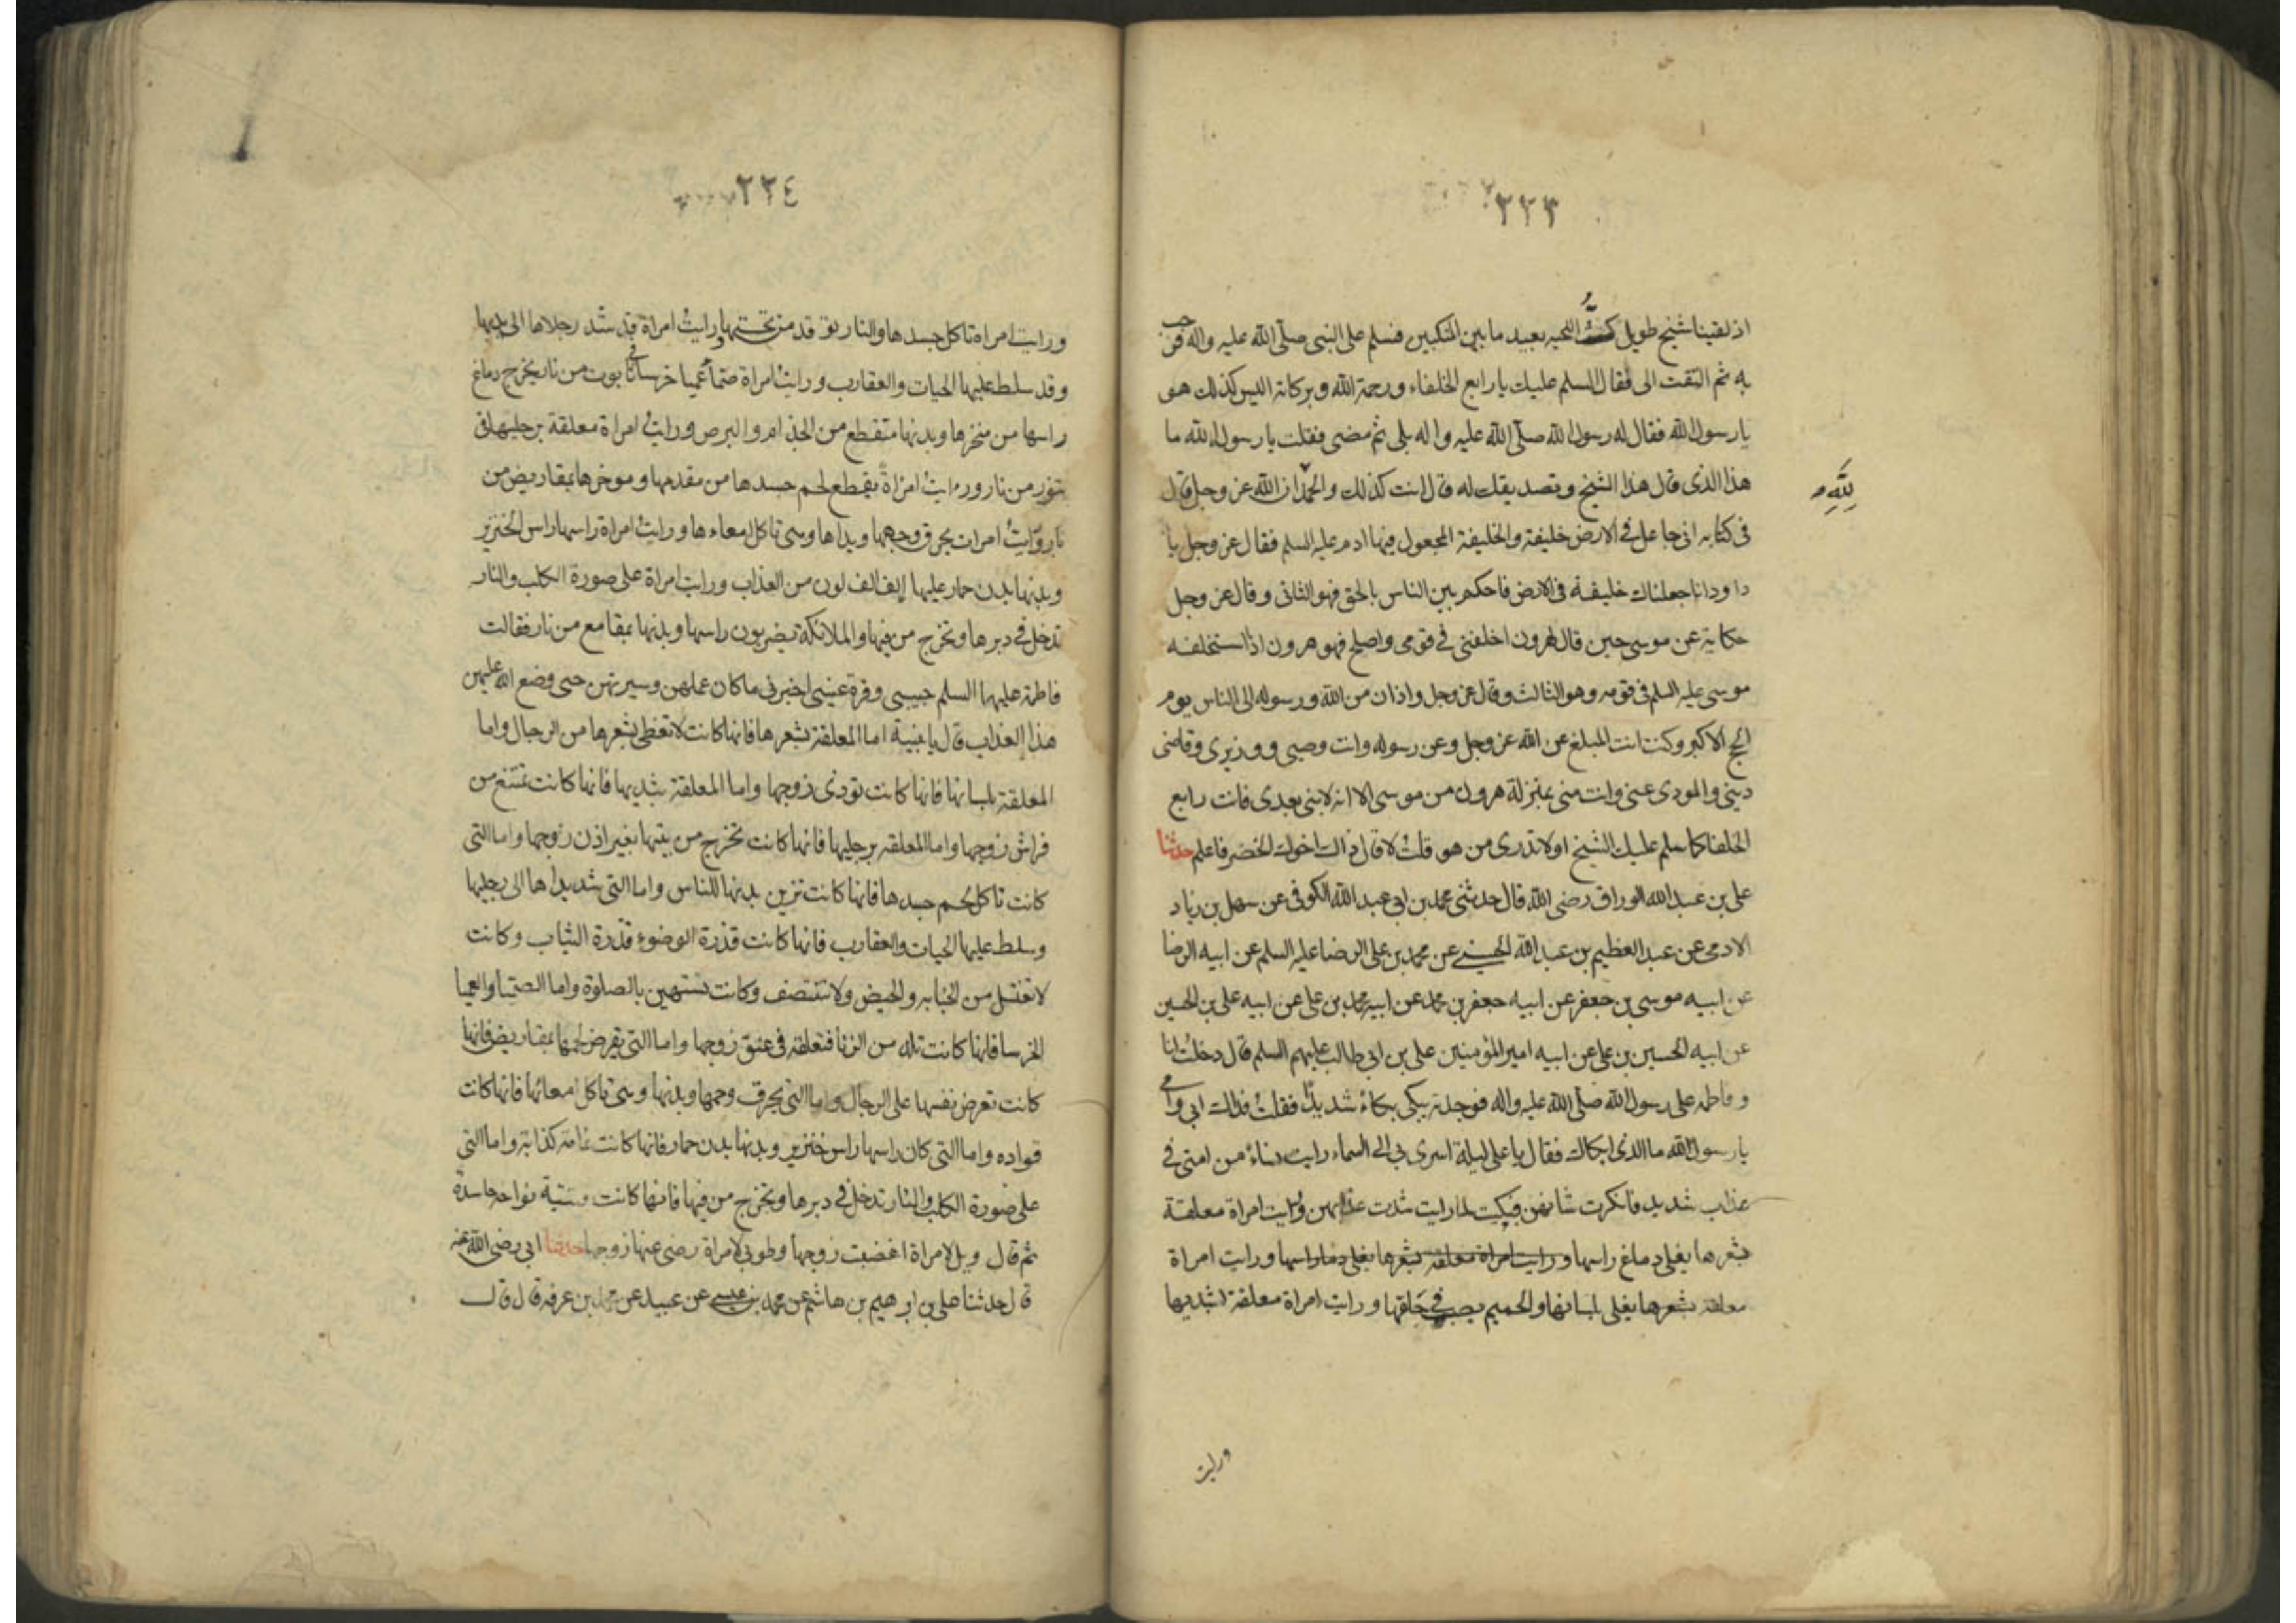 ٢٢٣
اذ لقينا شيخ طويل كثّ اللحيه بعيد ما بين المنكبين فسلم على النبى صلّى الله عليه واله و رحب
به ثم التفت الى فقال السلم عليك يا رابع الخلفاء ورحمة الله وبركاته اليس كذلك هو
يا رسول الله فقال له رسول الله صلّى الله عليه واله بلى ثم مضى فقلت يا رسول الله ما
هذا الذى قال هذا الشيخ وتصديقك له قال انت كذلك والحمد لله ان الله عز وجل قال
فى كتابه انى جاعل فى الارض خليفة والخليفة المجعول فيها ادم عليه السلم فقال عز وجل يا
داود انا جعلناك خليفة فى الارض فاحكم بين الناس بالحق فهو الثانى وقال عز وجل
حكاية عن موسى حين قال لهرون اخلفنى فى قومى واصلح فهو هرون اذ استخلفه
موسى عليه السلم فى قومه وهو الثالث وقال عز وجل واذان من الله ورسوله الى الناس يوم
الحج الاكبر وكنت انت المبلغ عن الله عز وجل وعن رسوله وانت وصيى ووزيرى وقاضى
دينى والمودى عنى وانت منى بمنزلة هرون من موسى الا انه لا نبى بعدى فانت رابع
الخلفا كما سلم عليك الشيخ اولا تدرى من هو قلت لا قال ذاك اخوك الخضر فاعلم حدثنا
على بن عبد الله الوراق رضى الله قال حدثنى محمد بن ابى عبد الله الكوفى عن سهل بن زياد
الادمى عن عبد العظيم بن عبد الله الحسنى عن محمد بن على الرضا عليه السلم عن ابيه الرضا
عن ابيه موسى بن جعفر عن ابيه جعفر بن محمد عن ابيه محمد بن على عن ابيه على بن الحسين
عن ابيه الحسين بن على عن ابيه امير المؤمنين على بن ابى طالب عليهم السلم قال دخلت انا
وفاطمه على رسول الله صلّى الله عليه واله فوجدته يبكى بكاءً شديدًا فقلت فداك ابى وامى
يا رسول الله ما الذى ابكاك فقال يا على ليلة اسرى بى الى السماء رايت نساءً من امتى فى
عذاب شديد فانكرت شانهن فبكيت لما رايت شدت عذابهن ورايت امراة معلقة
بشعرها يغلى دماغ راسها و رايت امراة معلقه بشعرها يغلى دماء راسها و رايت امراة
معلقة بشعرها يغلى بلسانها والحميم يصب فى حلقها ورايت امراة معلقة بثديها
لله
ورايت
٢٢٤
ورايت امراة تاكل جسدها والنار توقد من تحتها ورايت امراة قد شد رجلاها الى يديها
وقد سلط عليها الحيات والعقارب ورايت امراة صمآ عميا خرسا فى تابوت من نار يخرج دماغ
راسها من منخرها وبدنها متقطع من الجذام والبرص ورايت امراة معلقة برجليها فى
تنور من نار ورايت امراةً يقطع لحم جسدها من مقدمها وموخرها بمقاريض من
نار ورايت امراة يحرق وجهها ويداها وهى تاكل امعاءها ورايت امراة راسها راس الخنزير
وبدنها بدن حمار عليها الف الف لون من العذاب ورايت امراة على صورة الكلب والنار
تدخل فى دبرها وتخرج من فيها والملائكة يضربون راسها وبدنها بمقامع من نار فقالت
فاطمة عليها السلم حبيبى وقرة عينى اخبرنى ما كان عملهن وسيرتهن حتى وضع الله عليهن
هذا العذاب قال يا بنية اما المعلقة بشعرها فانها كانت لا تغطى شعرها من الرجال واما
المعلقة بلسانها فانها كانت توذى زوجها واما المعلقة بثديها فانها كانت تمتنع من
فراش زوجها واما المعلقه برجليها فانها كانت تخرج من بيتها بغير اذن زوجها واما التى
كانت تاكل لحم جسدها فانها كانت تزين بدنها للناس واما التى شد يداها الى رجليها
وسلط عليها الحيات والعقارب فانها كانت قذرة الوضوء قذرة الثياب وكانت
لا تغتسل من الجنابه والحيض ولا تتنصف وكانت تستهين بالصلوة واما الصميا والعميا
الخرسا فانها كانت تلد من الزنا فتعلقه فى عنق زوجها واما التى يقرض لحمها بمقاريض فانها
كانت تعرض نفسها على الرجال واما التى يحرق وجهها وبدنها وهى تاكل امعائها فانها كانت
قواده واما التى كان راسها راس خنزير وبدنها بدن حمار فانها كانت نمامة كذابة واما التى
على صورة الكلب والنار تدخل فى دبرها وتخرج من فيها فانها كانت قينة نواحه حاسدة
ثم قال ويل لامراة اغضبت زوجها وطوبى لامراة رضى عنها زوجها حدثنا ابى رضى الله عنه
قال حدثنا على بن ابرهيم بن هاشم عن محمد بن عيسى عن عبيد عن محمد بن عرفه قال قال